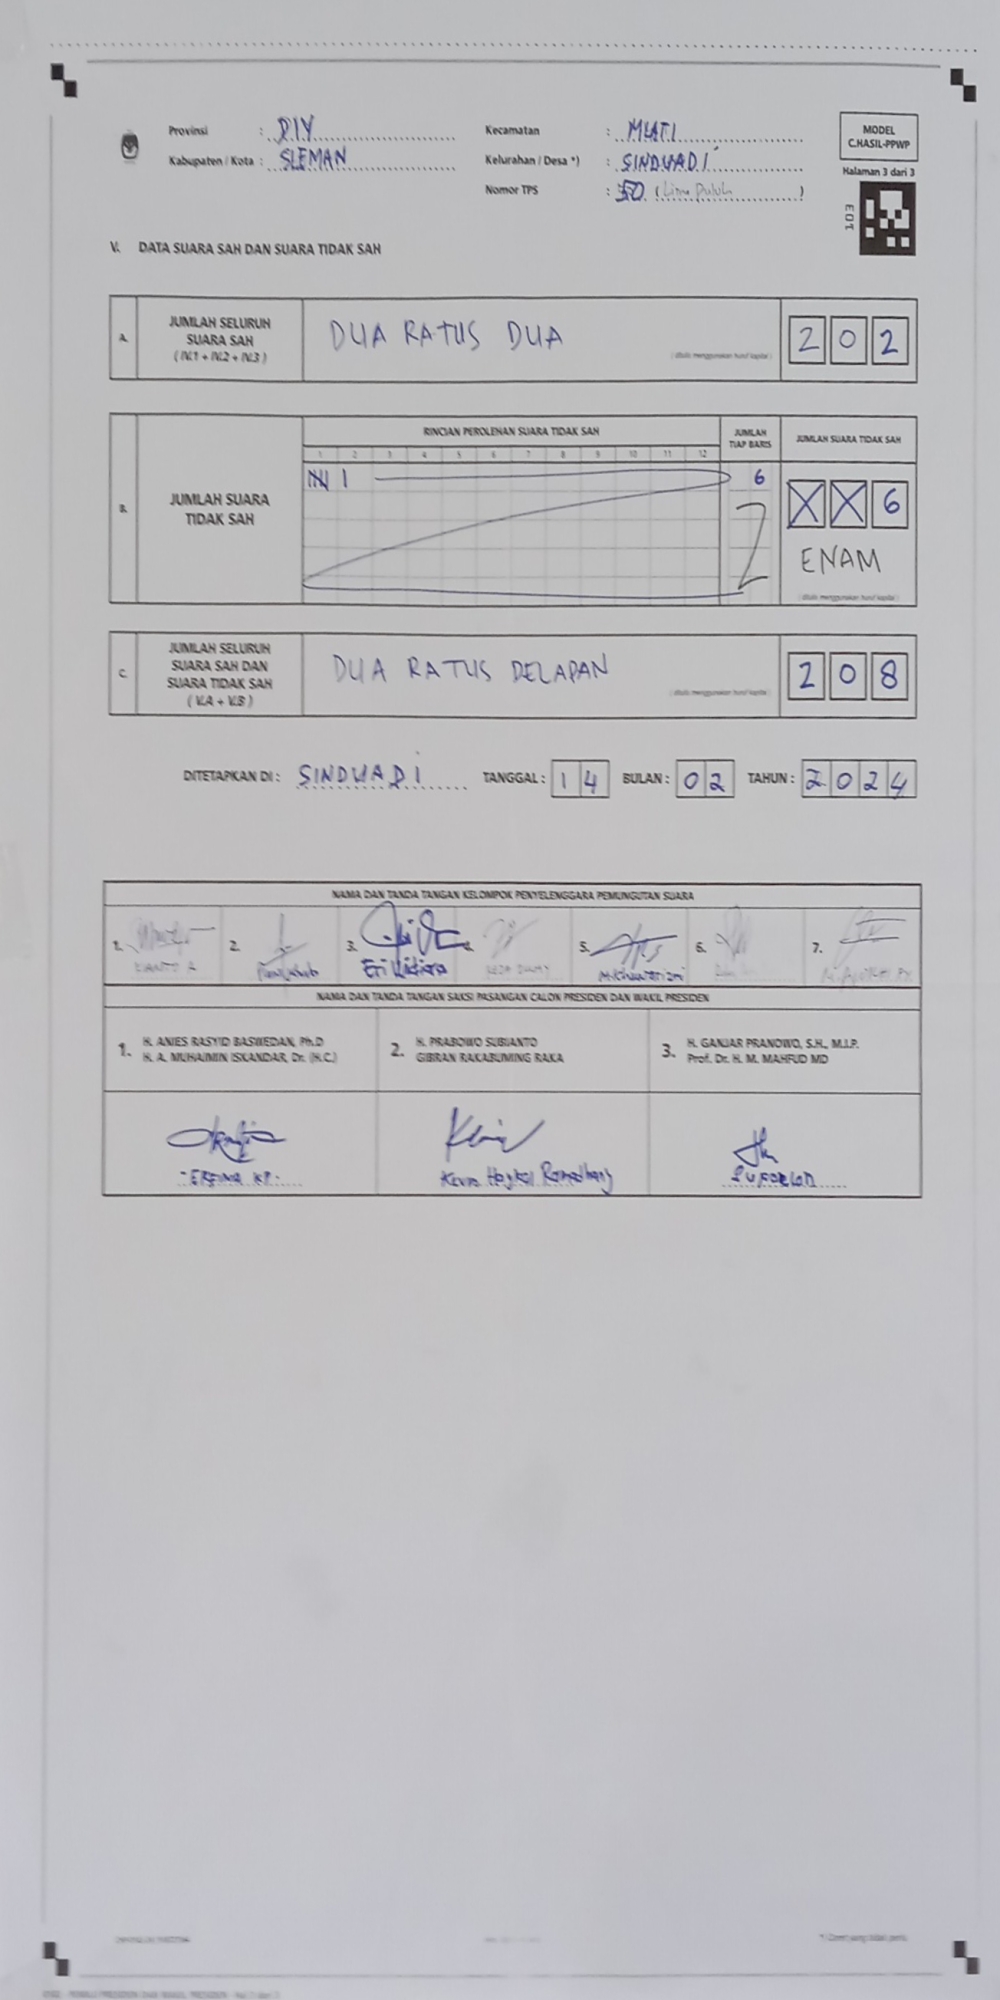 Provinsi : DIY
Kabupaten / Kota : SLEMAN
Kecamatan : MLATI
Kelurahan / Desa *) : SINDUADI
Nomor TPS : 50 (Lima Puluh)
MODEL
C.HASIL-PPWP
Halaman 3 dari 3
E01
V. DATA SUARA SAH DAN SUARA TIDAK SAH
A. JUMLAH SELURUH
SUARA SAH
( IV.1 + IV.2 + IV.3 )
DUA RATUS DUA
( ditulis menggunakan huruf kapital )
2 0 2
B. JUMLAH SUARA
TIDAK SAH
RINCIAN PEROLEHAN SUARA TIDAK SAH
1 2 3 4 5 6 7 8 9 10 11 12
JUMLAH
TIAP BARIS
6
JUMLAH SUARA TIDAK SAH
X X 6
ENAM
( ditulis menggunakan huruf kapital )
C. JUMLAH SELURUH
SUARA SAH DAN
SUARA TIDAK SAH
( V.A + V.B )
DUA RATUS DELAPAN
( ditulis menggunakan huruf kapital )
2 0 8
DITETAPKAN DI : SINDUADI TANGGAL : 14 BULAN : 02 TAHUN : 2024
NAMA DAN TANDA TANGAN KELOMPOK PENYELENGGARA PEMUNGUTAN SUARA
1. 2. 3. 4. 5. 6. 7.
NAMA DAN TANDA TANGAN SAKSI PASANGAN CALON PRESIDEN DAN WAKIL PRESIDEN
1. H. ANIES RASYID BASWEDAN, Ph.D
H. A. MUHAIMIN ISKANDAR, Dr. (H.C.)
2. H. PRABOWO SUBIANTO
GIBRAN RAKABUMING RAKA
3. H. GANJAR PRANOWO, S.H., M.I.P.
Prof. Dr. H. M. MAHFUD MD
*) Coret yang tidak perlu